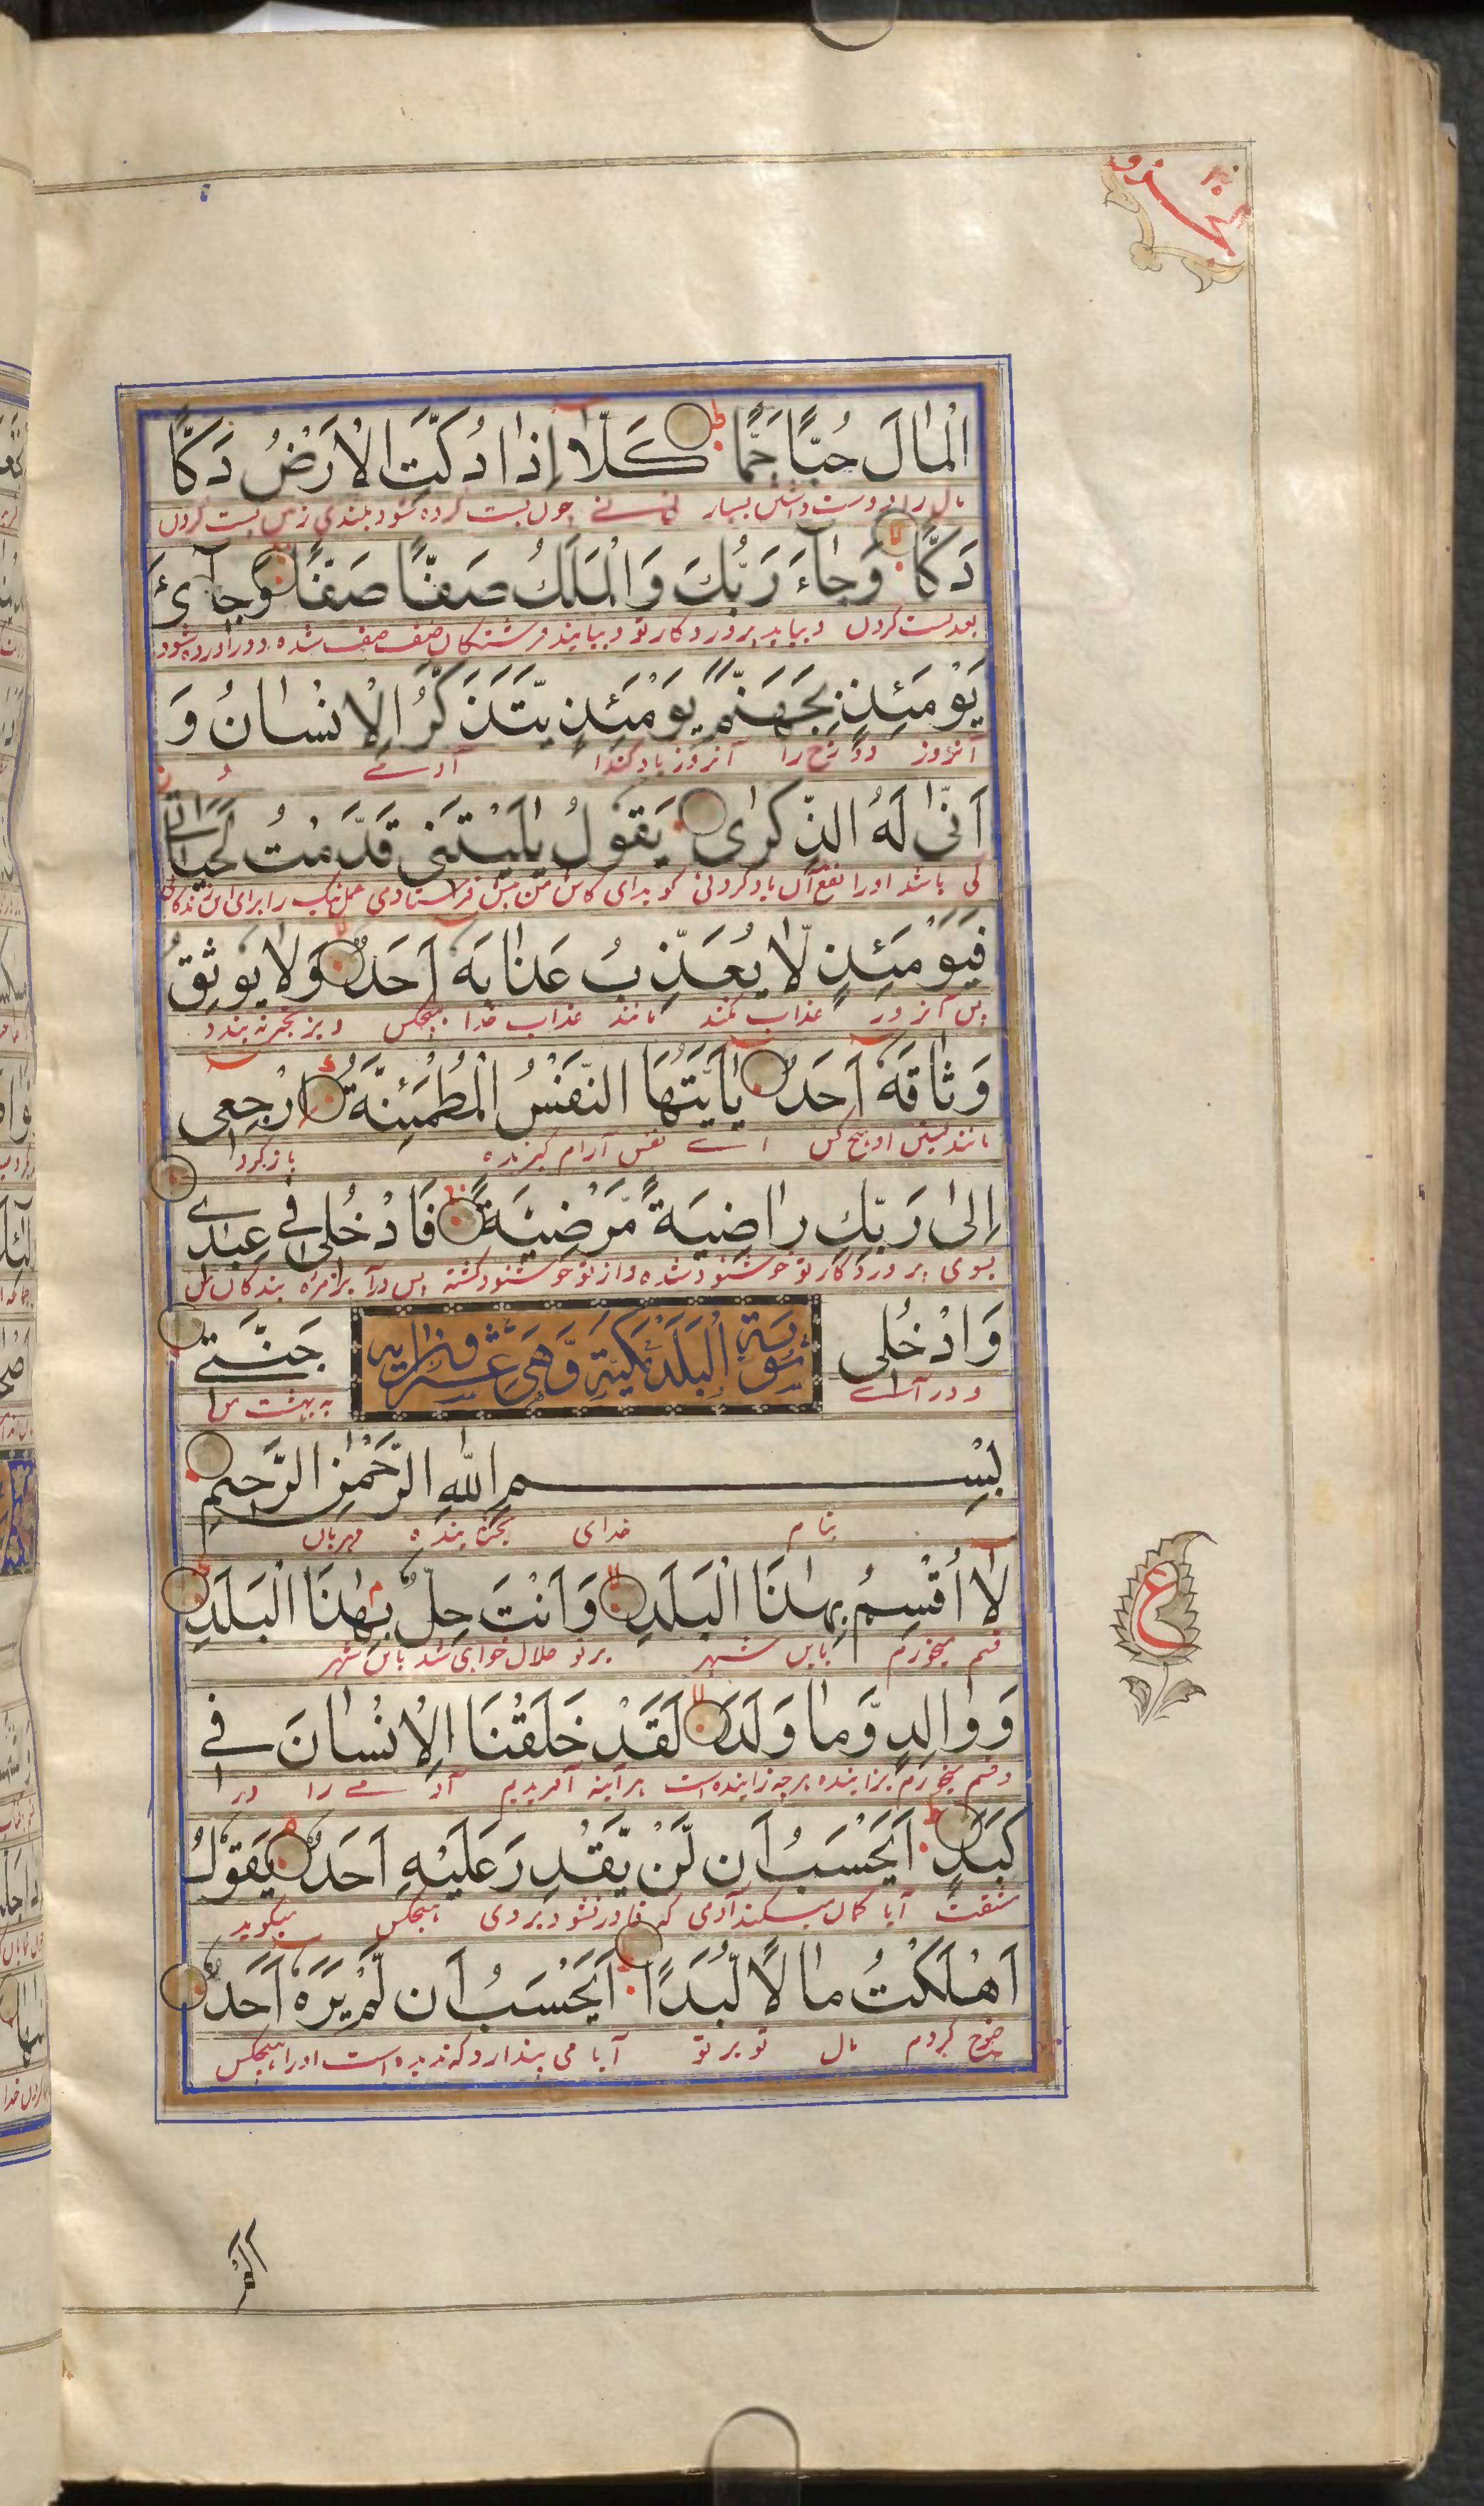 الْمَالَ حُبًّا جَمًّا كَلَّا إِذَا دُكَّتِ الْاَرْضُ دَكًّا
مال را دوست داشتن بسیار نی نی چون پست کرده شود بلندی زمین پست کردن
دَكًّا وَجَآءَ رَبُّكَ وَالْمَلَكُ صَفًّا صَفًّا وَجِآیْءَ
بعد پست کردن و بیاید پروردکار تو و بیایند فرشتکان صف صف شده و آورده شود
يَوْمَئِذٍ بِجَهَنَّمَ يَوْمَئِذٍ يَّتَذَكَّرُ الْاِنْسَانُ وَ
آنروز دوزخ را آنروز یاد کند آدمے و
اَنّٰى لَهُ الذِّكْرٰى يَقُولُ يٰلَيْتَنِى قَدَّمْتُ لِحَيَاتِے
کی باشد اورا نفع آن یاد کردنی کوید ای کاش من پیش فرستادمی عمل نیک را برای این زندکانی
فَيَوْمَئِذٍ لَّا يُعَذِّبُ عَذَابَهٗ اَحَدٌ وَلَا يُوثِقُ
پس آنروز عذاب نکند مانند عذاب خدا هیچکس و بزنجیر نه بندد
وَثَاقَهٗ اَحَدٌ يٰاَيَّتُهَا النَّفْسُ الْمُطْمَئِنَّةُ ارْجِعِى
مانند بستن او هیچ کس اے نفس آرام کیرنده بازکرد
اِلٰى رَبِّكِ رَاضِيَةً مَّرْضِيَّةً فَادْخُلِى فِى عِبٰدِے
بسوی پروردکار تو خوشنود شده و از تو خوشنود کشته پس درآ بزمره بندکان من
وَادْخُلِى سُورَةُ الْبَلَدِ مَكِّيَّةٌ وَّهِىَ عِشْرُونَ اٰيَة جَنَّتِے
و درآے به بهشت من
بِسْمِ اللّٰهِ الرَّحْمٰنِ الرَّحِيمِ
بنام خدای بخشاینده مهربان
لَا اُقْسِمُ بِهٰذَا الْبَلَدِ وَاَنْتَ حِلٌّ بِهٰذَا الْبَلَدِ
قسم میخورم باین شهر بر تو حلال خواهی شد باین شهر
وَوَالِدٍ وَّمَا وَلَدَ لَقَدْ خَلَقْنَا الْاِنْسَانَ فِى
و قسم میخورم بزاینده هرچه زاینده است هرآینه آفریدیم آدمے را در
كَبَدٍ اَيَحْسَبُ اَن لَّنْ يَّقْدِرَ عَلَيْهِ اَحَدٌ يَقُولُ
مشقت آیا کمان میکند آدمی که قادر نشود بر وی هیچکس میکوید
اَهْلَكْتُ مَالًا لُّبَدًا اَيَحْسَبُ اَن لَّمْ يَرَهٗ اَحَدٌ
خرج کردم مال تو بر تو آیا می پندارد که ندیده است اورا هیچکس
ع
اَلَمْ